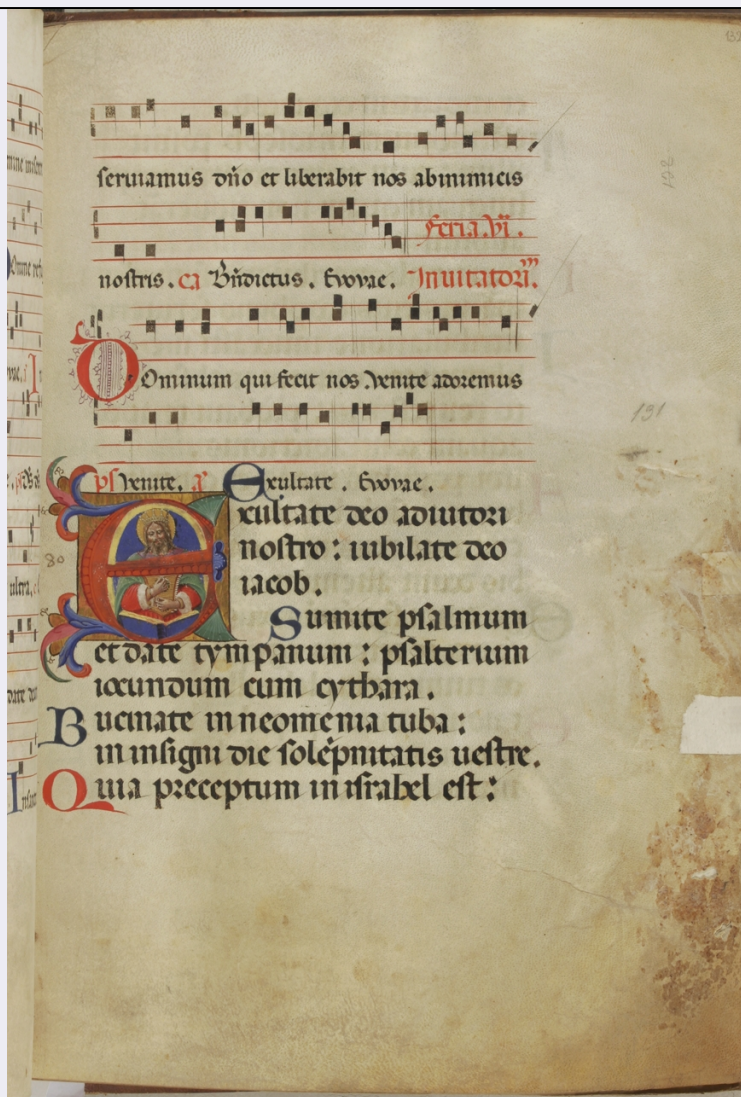 seruiamus dño et liberabit nos ab inimicis
nostris. ca Bñdictus. Evovae. Feria. vi.
Inuitatori.
Dominum qui fecit nos venite adoremus
ps venite. a Exultate. Evovae.
Exultate deo adiutori
nostro : iubilate deo
iacob.
Sumite psalmum
et date tympanum : psalterium
iocundum cum cythara.
Bucinate in neomenia tuba :
in insigni die solēpnitatis uestre.
Quia preceptum in israhel est :
80
131